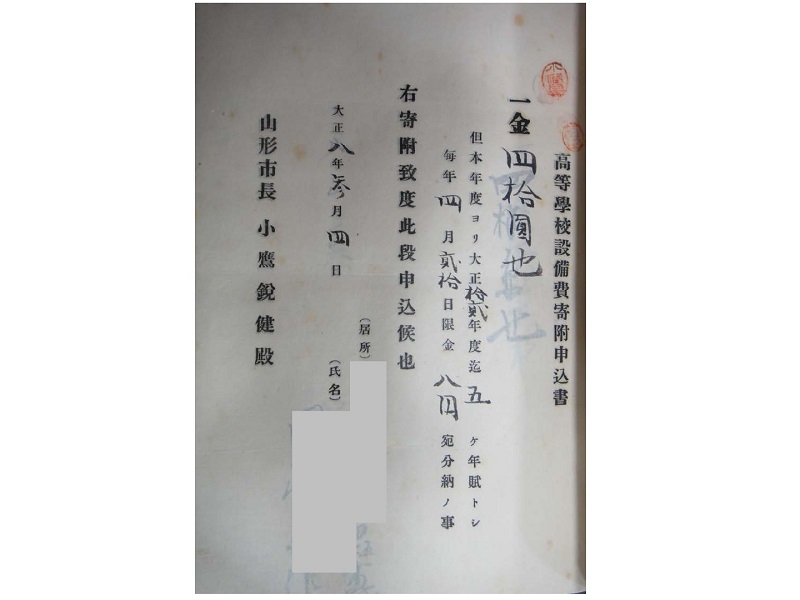 高等學校設備費寄附申込書
一金四拾圓也
但本年度ヨリ大正拾貳年度迄五ケ年賦トシ
每年四月貳拾日限金八円宛分納ノ事
右寄附致度此段申込候也
大正八年參月四日
(居所)
(氏名)
山形市長 小鷹銳健殿